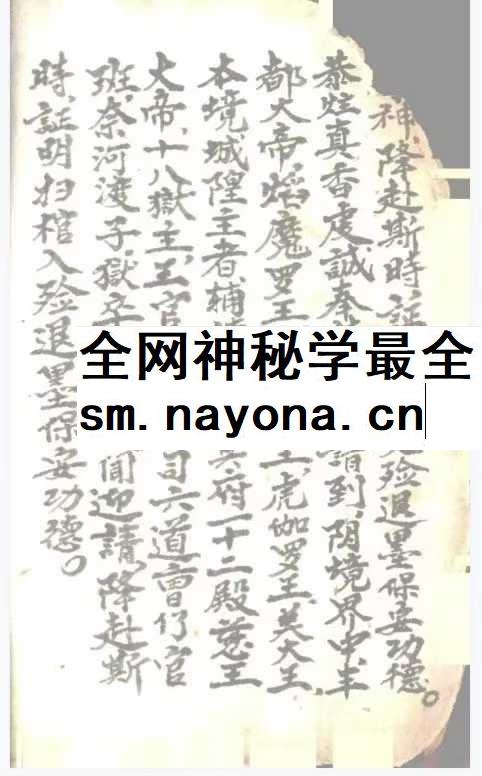 神、降赴斯時、証
殓退墨保安功德。
恭炷真香虔誠奉
請到、阴境界中、丰
都大帝、焰魔罗王
王、虎伽罗王、美大王、
本境城隍主者、辅
府一十二殿慈王
大帝、十八獄主、王官
司六道曹佇官
班、奈河渡子、獄卒
聞迎請、降赴斯
時、証明扫棺入殓退墨保安功德。
全网神秘学最全
sm.nayona.cn